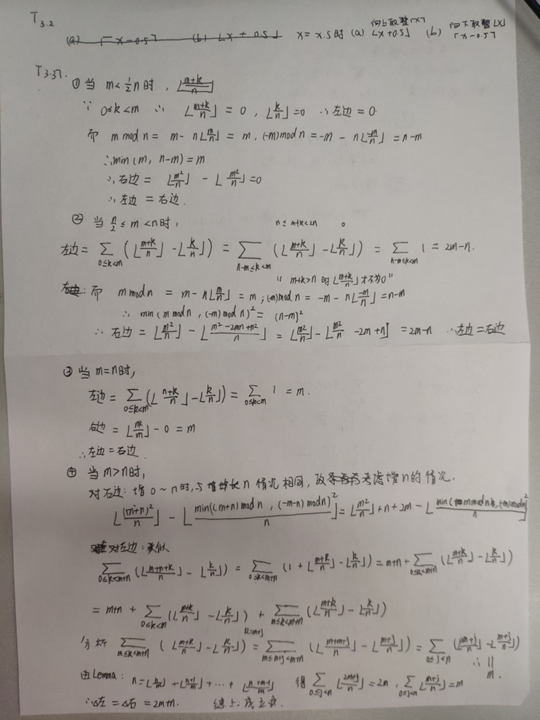 T3.2
(a) ⌈x-0.5⌉ (b) ⌊x+0.5⌋ x=x.5时 (a) 向上取整⌈x⌉ ⌊x+0.5⌋ (b) 向下取整⌊x⌋ ⌈x-0.5⌉
T3.37.
① 当 m<½n时, ⌊(m+k)/n⌋
∵ 0≤k<m ∴ ⌊(m+k)/n⌋ = 0, ⌊k/n⌋=0 ∴左边=0
而 m mod n = m - n⌊m/n⌋ = m, (-m) mod n = -m - n⌊-m/n⌋ = n-m
∴ min(m, n-m) = m
∴ 右边 = ⌊m²/n⌋ - ⌊m²/n⌋ = 0
∴ 左边 = 右边.
② 当 n/2 ≤ m < n时, n ≤ m+k < 2n 0
左边 = ∑0≤k<m (⌊(m+k)/n⌋ - ⌊k/n⌋) = ∑n-m≤k<m (⌊(m+k)/n⌋ - ⌊k/n⌋) = ∑n-m≤k<m 1 = 2m-n.
"m+k>n 时 ⌊(m+k)/n⌋ 才不为0"
而 m mod n = m - n⌊m/n⌋ = m; (-m) mod n = -m - n⌊-m/n⌋ = n-m
∴ min(m mod n, (-m) mod n)² = (n-m)²
∴ 右边 = ⌊m²/n⌋ - ⌊(m²-2mn+n²)/n⌋ = ⌊m²/n⌋ - ⌊m²/n - 2m+n⌋ = 2m-n ∴左边=右边
③ 当 m=n时,
左边 = ∑0≤k<m (⌊(n+k)/n⌋ - ⌊k/n⌋) = ∑0≤k<m 1 = m.
右边 = ⌊m²/m⌋ - 0 = m
∴左边=右边.
④ 当 m>n时,
对右边: 增 0~n时, 与增长n 情况相同, 考虑增n的情况.
⌊(m+n)²/n⌋ - ⌊min((m+n) mod n, (-m-n) mod n)²/n⌋ = ⌊m²/n⌋ + n + 2m - ⌊min(m mod n, (-m) mod n)²/n⌋
对左边: 类似
∑0≤k<m+n (⌊(m+n+k)/n⌋ - ⌊k/n⌋) = ∑0≤k<m+n (1 + ⌊(m+k)/n⌋ - ⌊k/n⌋) = m+n + ∑0≤k<m+n (⌊(m+k)/n⌋ - ⌊k/n⌋)
= m+n + ∑0≤k<m (⌊(m+k)/n⌋ - ⌊k/n⌋) + ∑m≤k<m+n (⌊(m+k)/n⌋ - ⌊k/n⌋)
k=m+j
分析 ∑m≤k<m+n (⌊(m+k)/n⌋ - ⌊k/n⌋) = ∑m≤m+j<m+n (⌊(m+m+j)/n⌋ - ⌊(m+j)/n⌋) = ∑0≤j<n (⌊(2m+j)/n⌋ - ⌊(m+j)/n⌋)
∴ || m.
由Lemma: n = ⌊n/m⌋ + ⌊(n+1)/m⌋ + ⋯ + ⌊(n+m-1)/m⌋ 得 ∑0≤j<n ⌊(2m+j)/n⌋ = 2m, ∑0≤j<n ⌊(m+j)/n⌋ = m
∴ △左 = △右 = 2m+n. 综上, 成立.